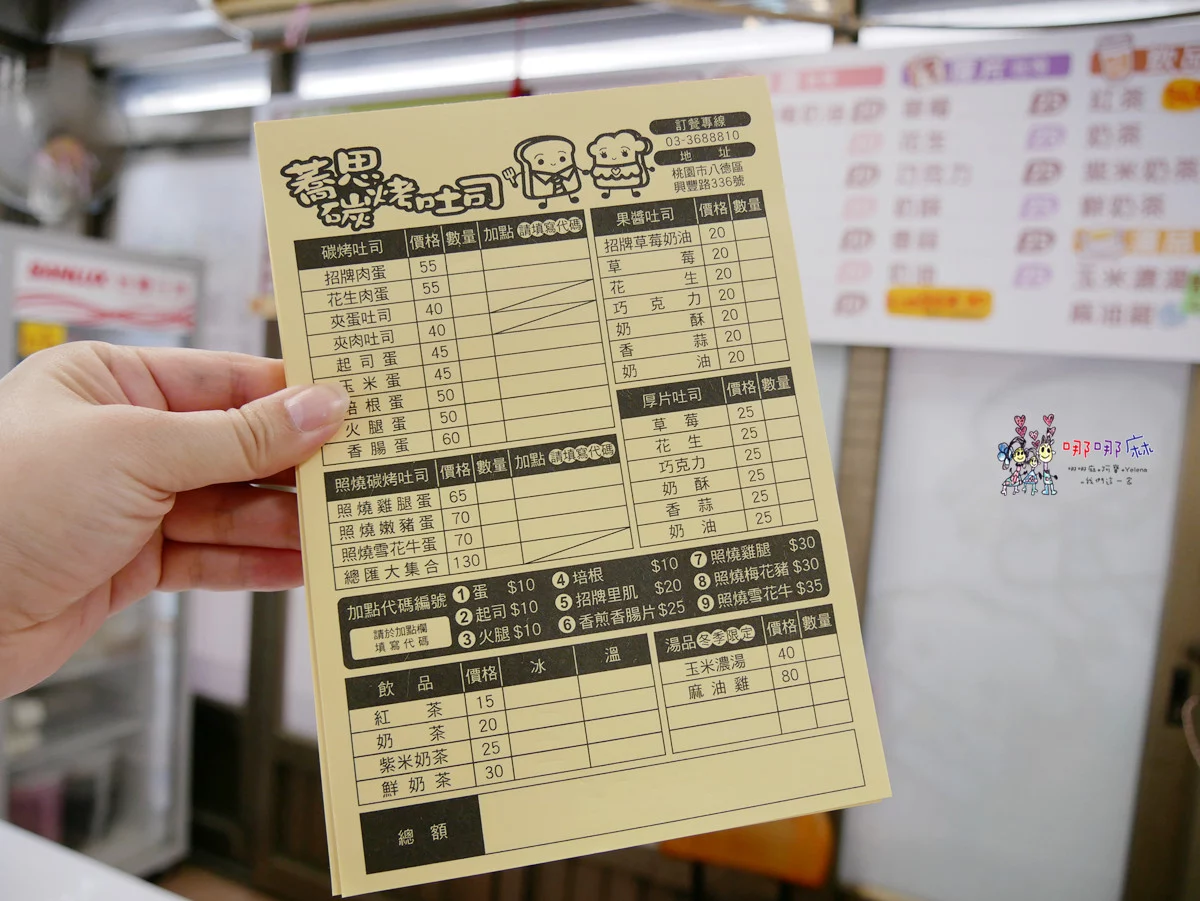 蕎思
碳烤吐司
訂餐專線
03-3688810
地 址
桃園市八德區
興豐路336號
碳烤吐司 價格 數量 加點 請填寫代碼
招牌肉蛋 55
花生肉蛋 55
夾蛋吐司 40
夾肉吐司 40
起司蛋 45
玉米蛋 45
培根蛋 50
火腿蛋 50
香腸蛋 60
照燒碳烤吐司 價格 數量 加點 請填寫代碼
照燒雞腿蛋 65
照燒嫩豬蛋 70
照燒雪花牛蛋 70
總匯大集合 130
果醬吐司 價格 數量
招牌草莓奶油 20
草莓 20
花生 20
巧克力 20
奶酥 20
香蒜 20
奶油 20
厚片吐司 價格 數量
草莓 25
花生 25
巧克力 25
奶酥 25
香蒜 25
奶油 25
加點代碼編號
請於加點欄
填寫代碼
1 蛋 $10
2 起司 $10
3 火腿 $10
4 培根 $10
5 招牌里肌 $20
6 香煎香腸片 $25
7 照燒雞腿 $30
8 照燒梅花豬 $30
9 照燒雪花牛 $35
飲品 價格 冰 溫
紅茶 15
奶茶 20
紫米奶茶 25
鮮奶茶 30
湯品 冬季限定 價格 數量
玉米濃湯 40
麻油雞 80
總額
厚片
草莓
花生
巧克力
奶酥
香蒜
奶油
飲品
紅茶
奶茶
紫米奶茶
鮮奶茶
湯品
玉米濃湯
麻油雞
哪哪麻
哪哪麻阿寶Yalena
我們這一家